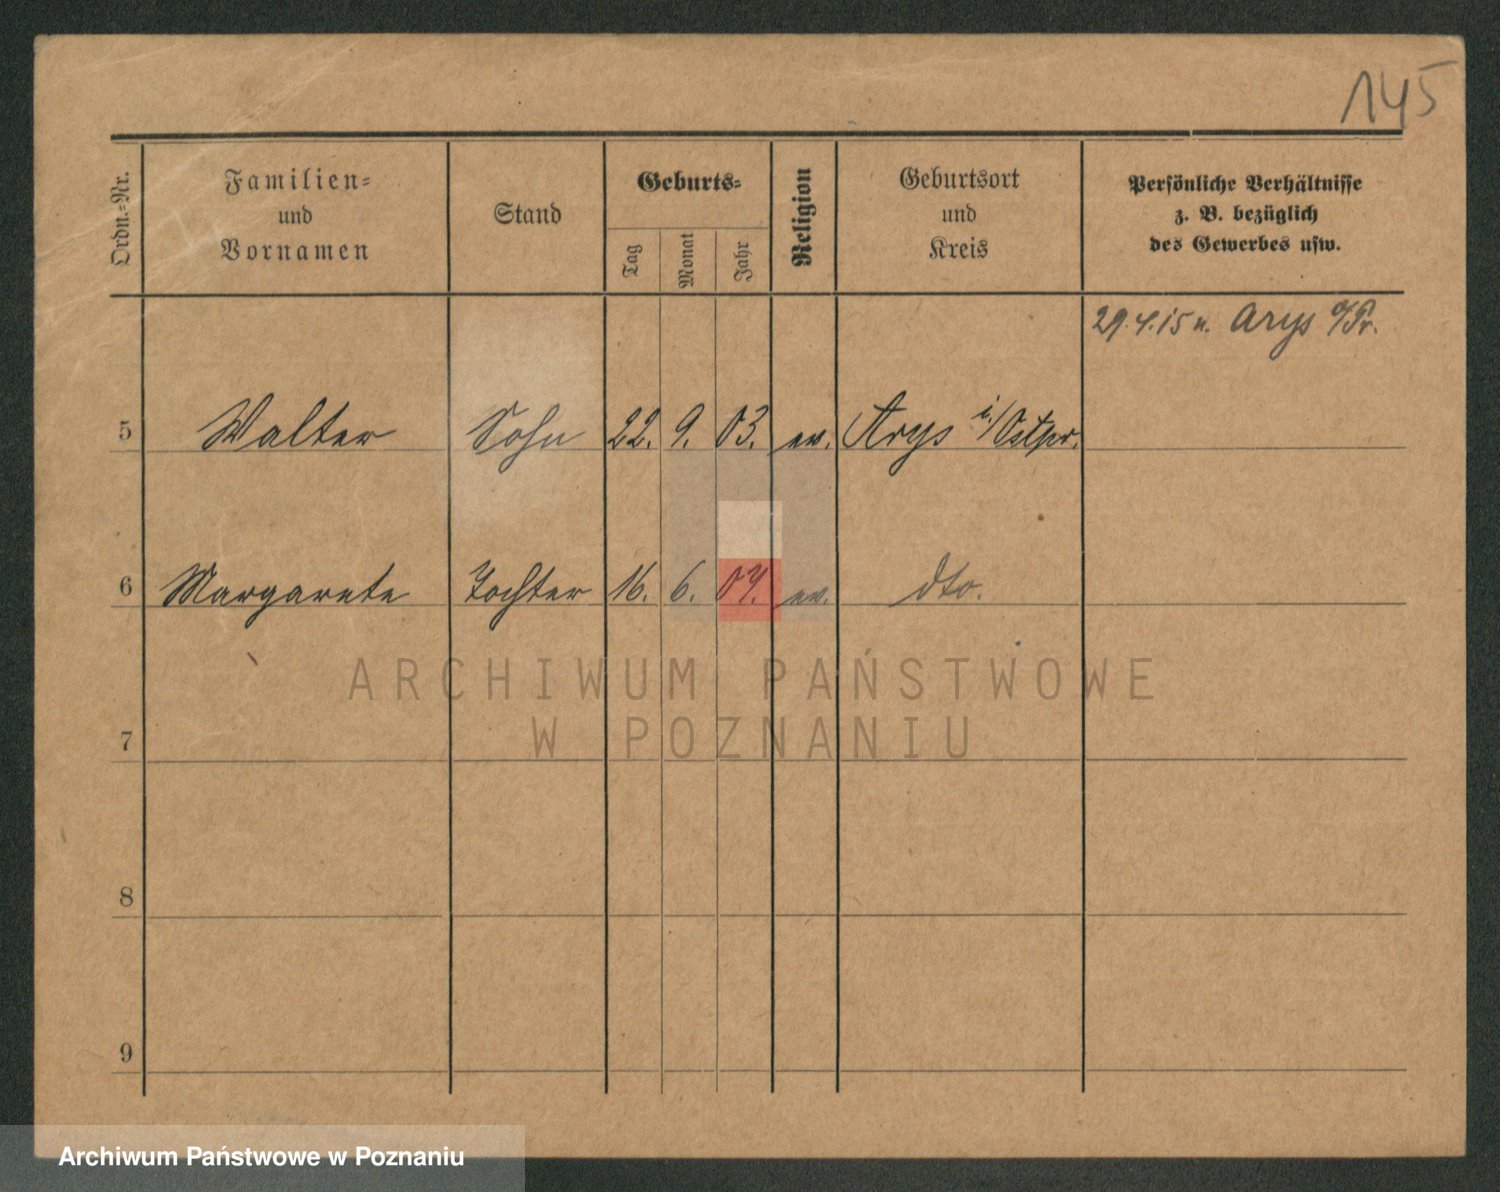 145
Ordn.-Nr.
Familien-
und
Vornamen
Stand
Geburts-
Tag
Monat
Jahr
Religion
Geburtsort
und
Kreis
Persönliche Verhältnisse
z. B. bezüglich
des Gewerbes usw.
29.4.15 n. Arys O/Pr.
5 Walter Sohn 22. 9. 03. ev. Arys i/Ostpr.
6 Margarete Tochter 16. 6. 07. ev. dto.
ARCHIWUM PAŃSTWOWE
W POZNANIU
7
8
9
Archiwum Państwowe w Poznaniu